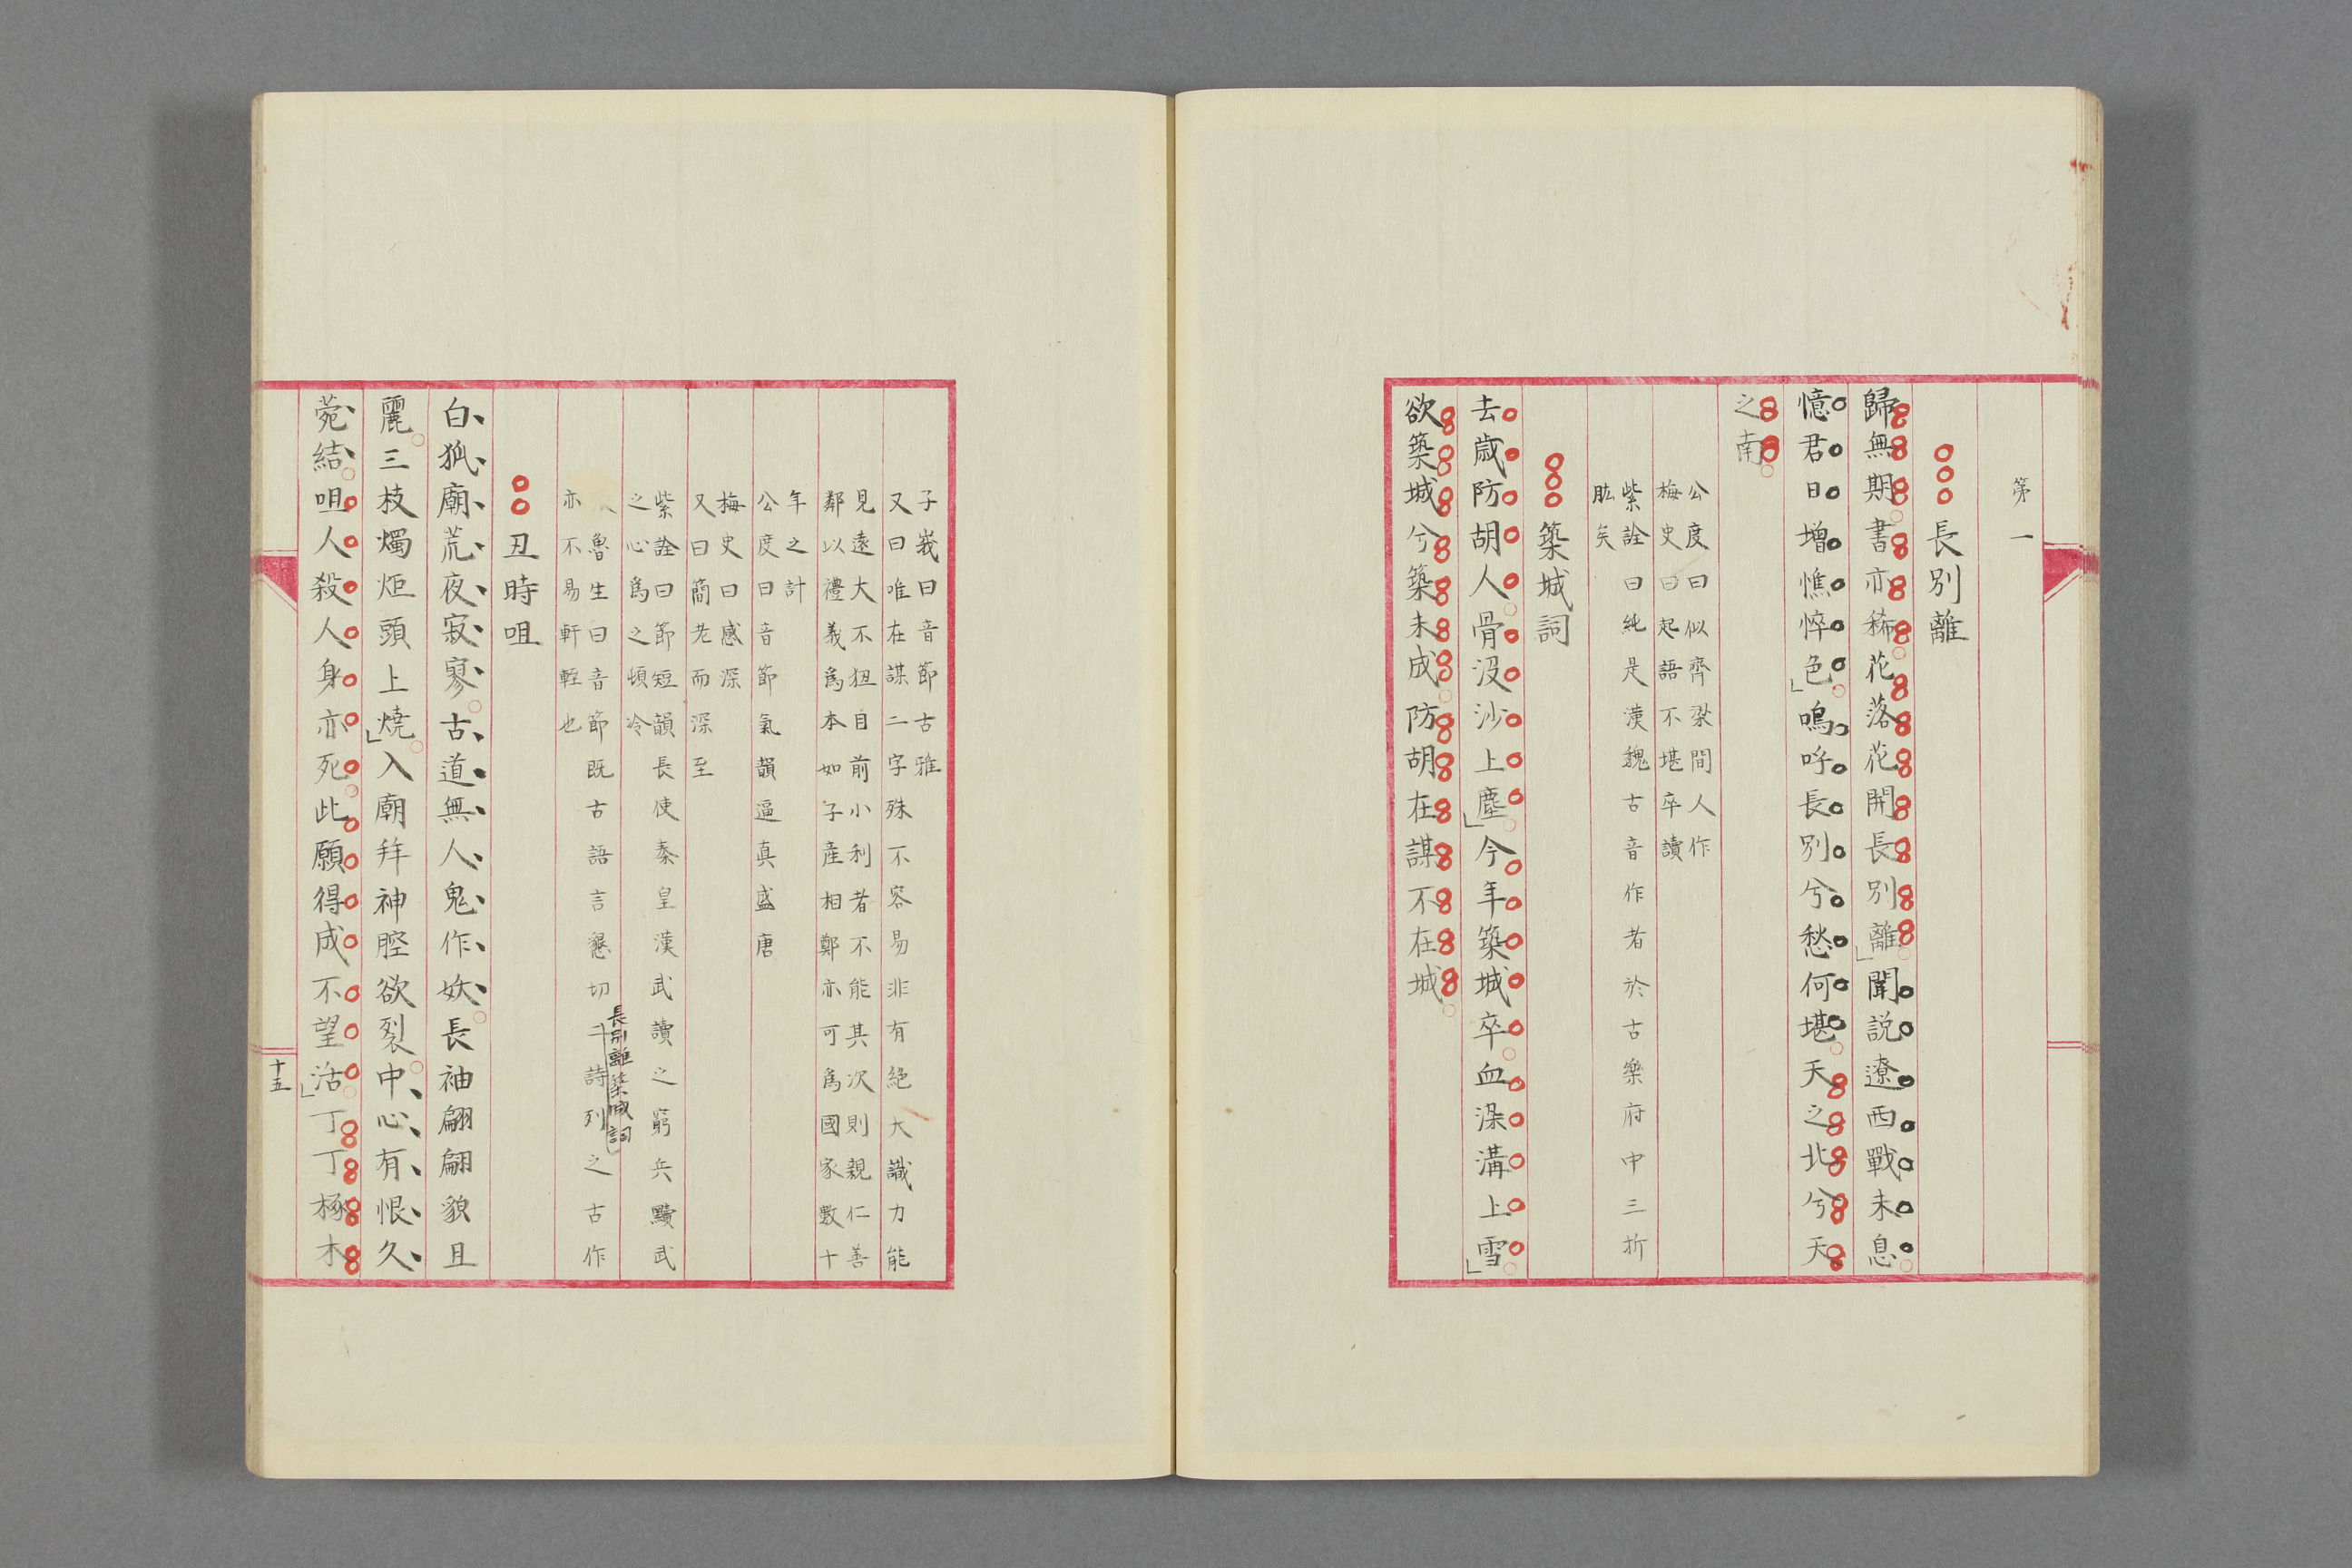 第一
長別離
歸無期書亦稀花落花開長別離聞説遼西戰未息
憶君日增憔悴色嗚呼長別兮愁何堪天之北兮天
之南
公度曰似齊梁間人作
梅史曰起語不堪卒讀
紫詮曰純是漢魏古音作者於古樂府中三折
肱矣
築城詞
去歲防胡人骨沒沙上塵今年築城卒血染溝上雪
欲築城兮築未成防胡在謀不在城
子峩曰音節古雅
又曰唯在謀二字殊不容易非有絶大識力能
見遠大不狃目前小利者不能其次則親仁善
鄰以禮義爲本如子産相鄭亦可爲國家數十
年之計
公度曰音節氣韻逼真盛唐
梅史曰感深
又曰簡老而深至
紫詮曰節短韻長使秦皇漢武讀之窮兵黷武
之心爲之頓冷
魯生曰音節既古語言懇切二詩列之古作
長別離築城詞
亦不易軒輊也
丑時咀
白狐廟荒夜寂寥古道無人鬼作妖長袖翩翩貌且
麗三枝燭炬頭上燒入廟拜神腔欲裂中心有恨久
菀結咀人殺人身亦死此願得成不望活丁丁椓木
十五